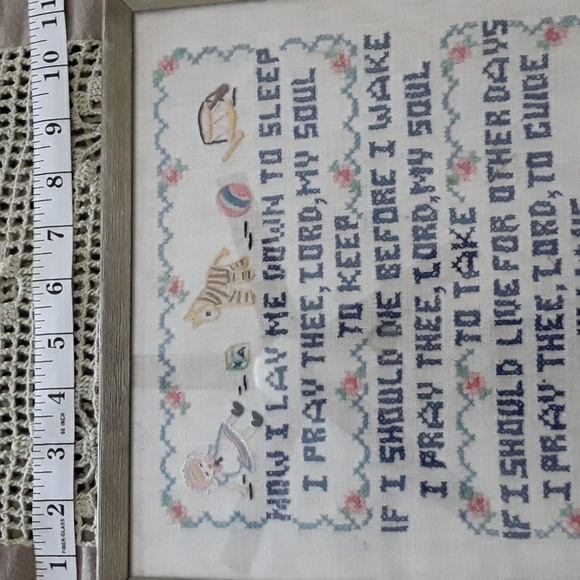 NOW I LAY ME DOWN TO SLEEP
I PRAY THEE, LORD, MY SOUL
TO KEEP
IF I SHOULD DIE BEFORE I WAKE
I PRAY THEE, LORD, MY SOUL
TO TAKE
IF I SHOULD LIVE FOR OTHER DAYS
I PRAY THEE, LORD, TO GUIDE
A
1 2 3 4 5 6 7 8 9 10 11
FIBER-GLASS
60 INCH